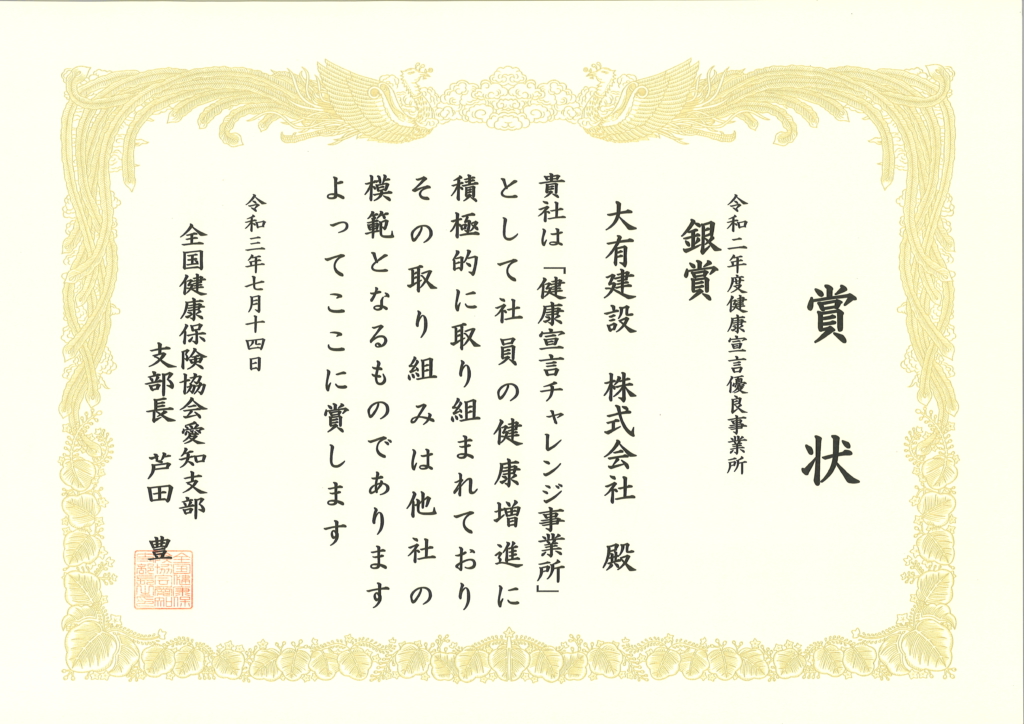 賞状
令和二年度健康宣言優良事業所
銀賞
大有建設 株式会社 殿
貴社は「健康宣言チャレンジ事業所」
として社員の健康増進に
積極的に取り組まれており
その取り組みは他社の
模範となるものであります
よってここに賞します
令和三年七月十四日
全国健康保険協会愛知支部
支部長 芦田 豊